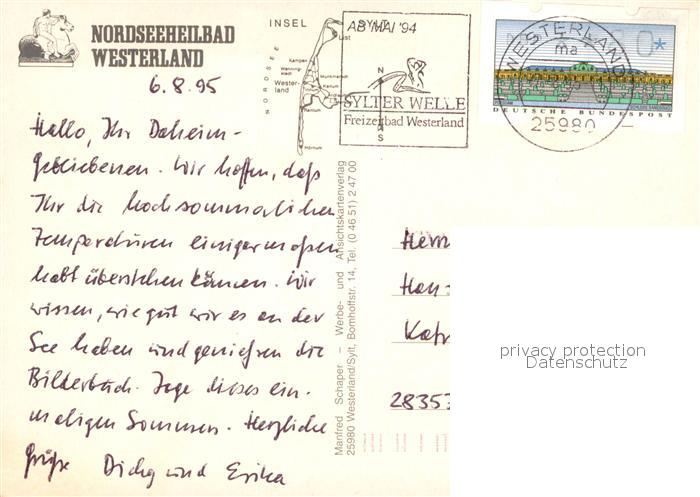 NORDSEEHEILBAD
WESTERLAND
6.8.95
Hallo, Ihr Daheim-
gebliebenen. Wir hoffen, daß
Ihr die hochsommerlichen
Temperaturen einigermaßen
habt überstehen können. Wir
wissen, wie gut wir es an der
See haben und genießen die
Bilderbuch-Tage dieses ein-
maligen Sommers. Herzliche
Grüße
und Erika
INSEL SYLT
NORDSEE
List
Kampen
Wenning-
stedt
Wester-
land
Munkmarsch
Keitum
Rantum
Hörnum
N
S
AB MAI '94
SYLTER WELLE
Freizeitbad Westerland
WESTERLAND
ma
25980
DEUTSCHE BUNDESPOST
Manfred Schaper – Werbe- und Ansichtskartenverlag
25980 Westerland/Sylt, Bomhoffstr. 14, Tel. (0 46 51) 2 47 00
Herrn
Han
Kath
28353
privacy protection
Datenschutz